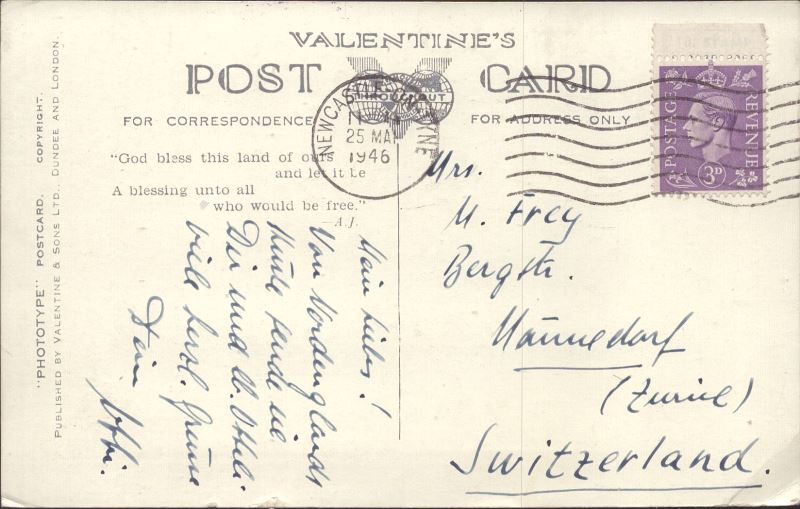 VALENTINE'S
POST CARD
FOR CORRESPONDENCE
FOR ADDRESS ONLY
NEWCASTLE
TYNE
25 MAY
1946
POSTAGE
REVENUE
3D
"God bless this land of ours
and let it be
A blessing unto all
who would be free."
—A.J.
Mein liebes!
Von Nordenglands
Küste sende ich
Dir und
viele herzl. Grüsse
Dein
Mrs.
M. Frey
Bergstr.
Männedorf
(Zurich)
Switzerland.
"PHOTOTYPE" POSTCARD. COPYRIGHT.
PUBLISHED BY VALENTINE & SONS LTD., DUNDEE AND LONDON.